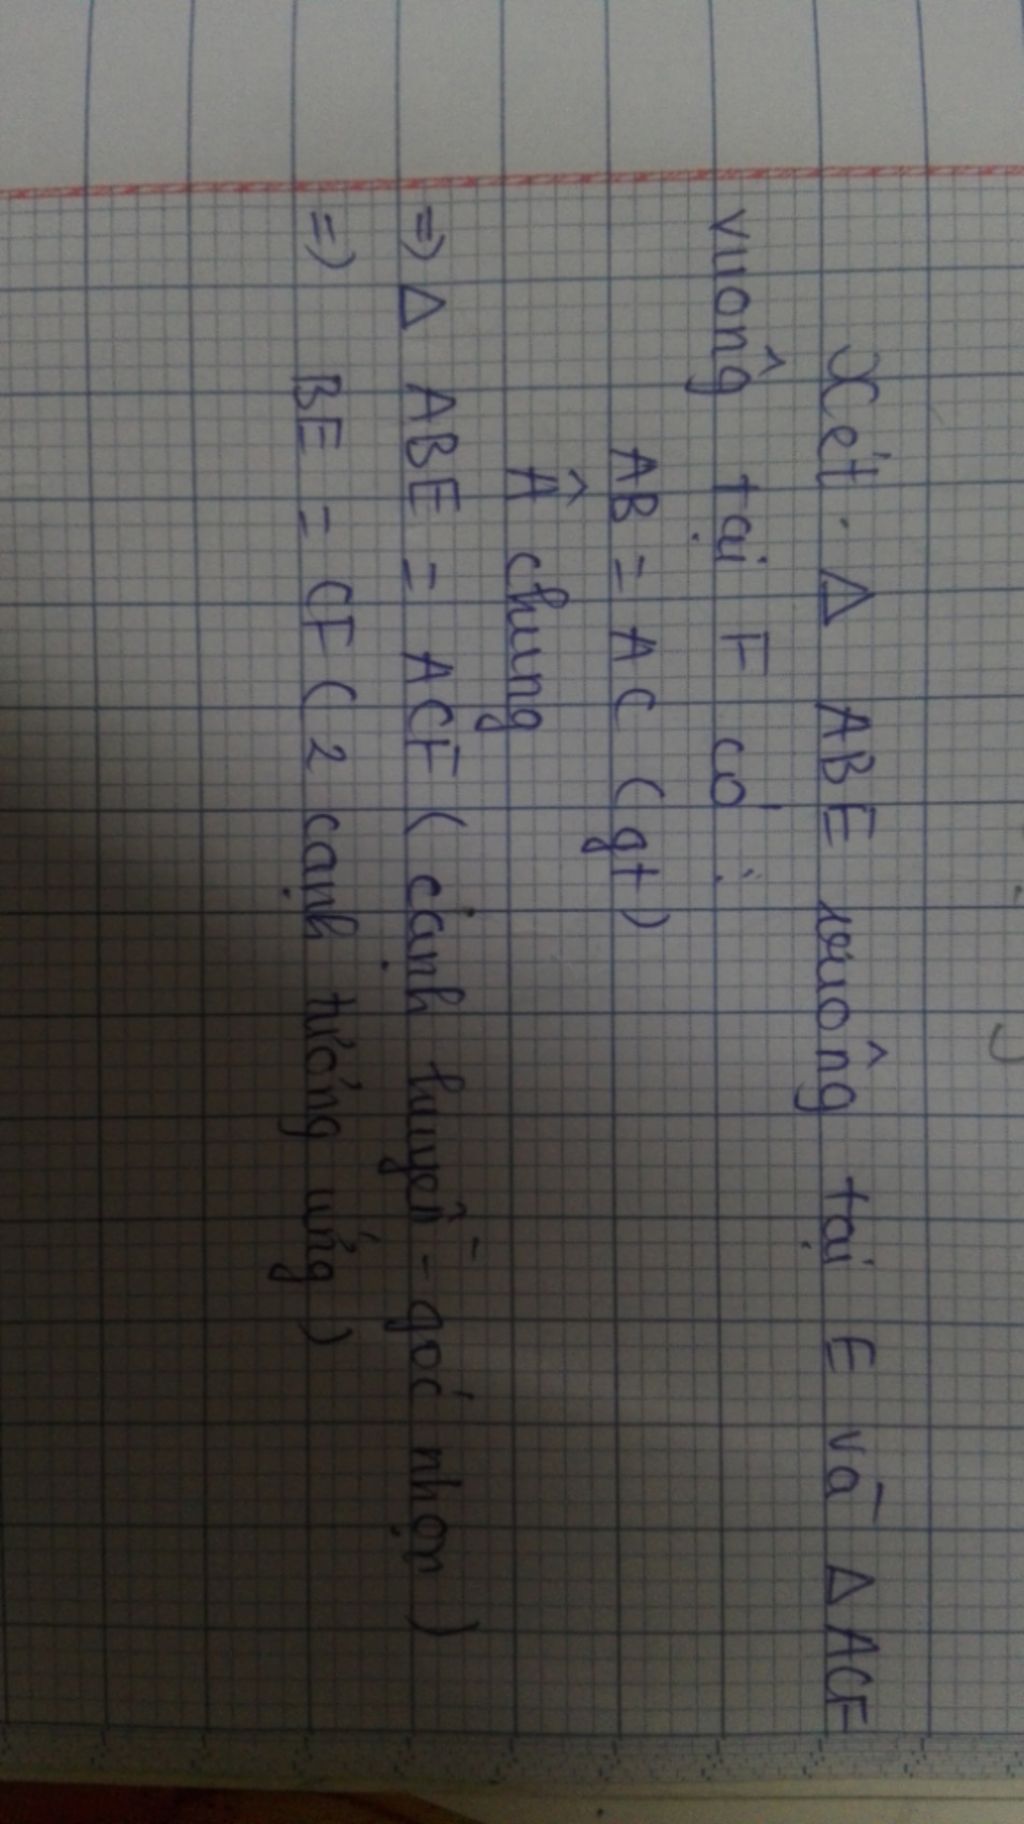 Xét Δ ABE vuông tại E và Δ ACF
vuông tại F có :
AB = AC (gt)
Â chung
=) Δ ABE = ACF ( cạnh huyền - góc nhọn )
=) BE = CF ( 2 cạnh tướng ứng )